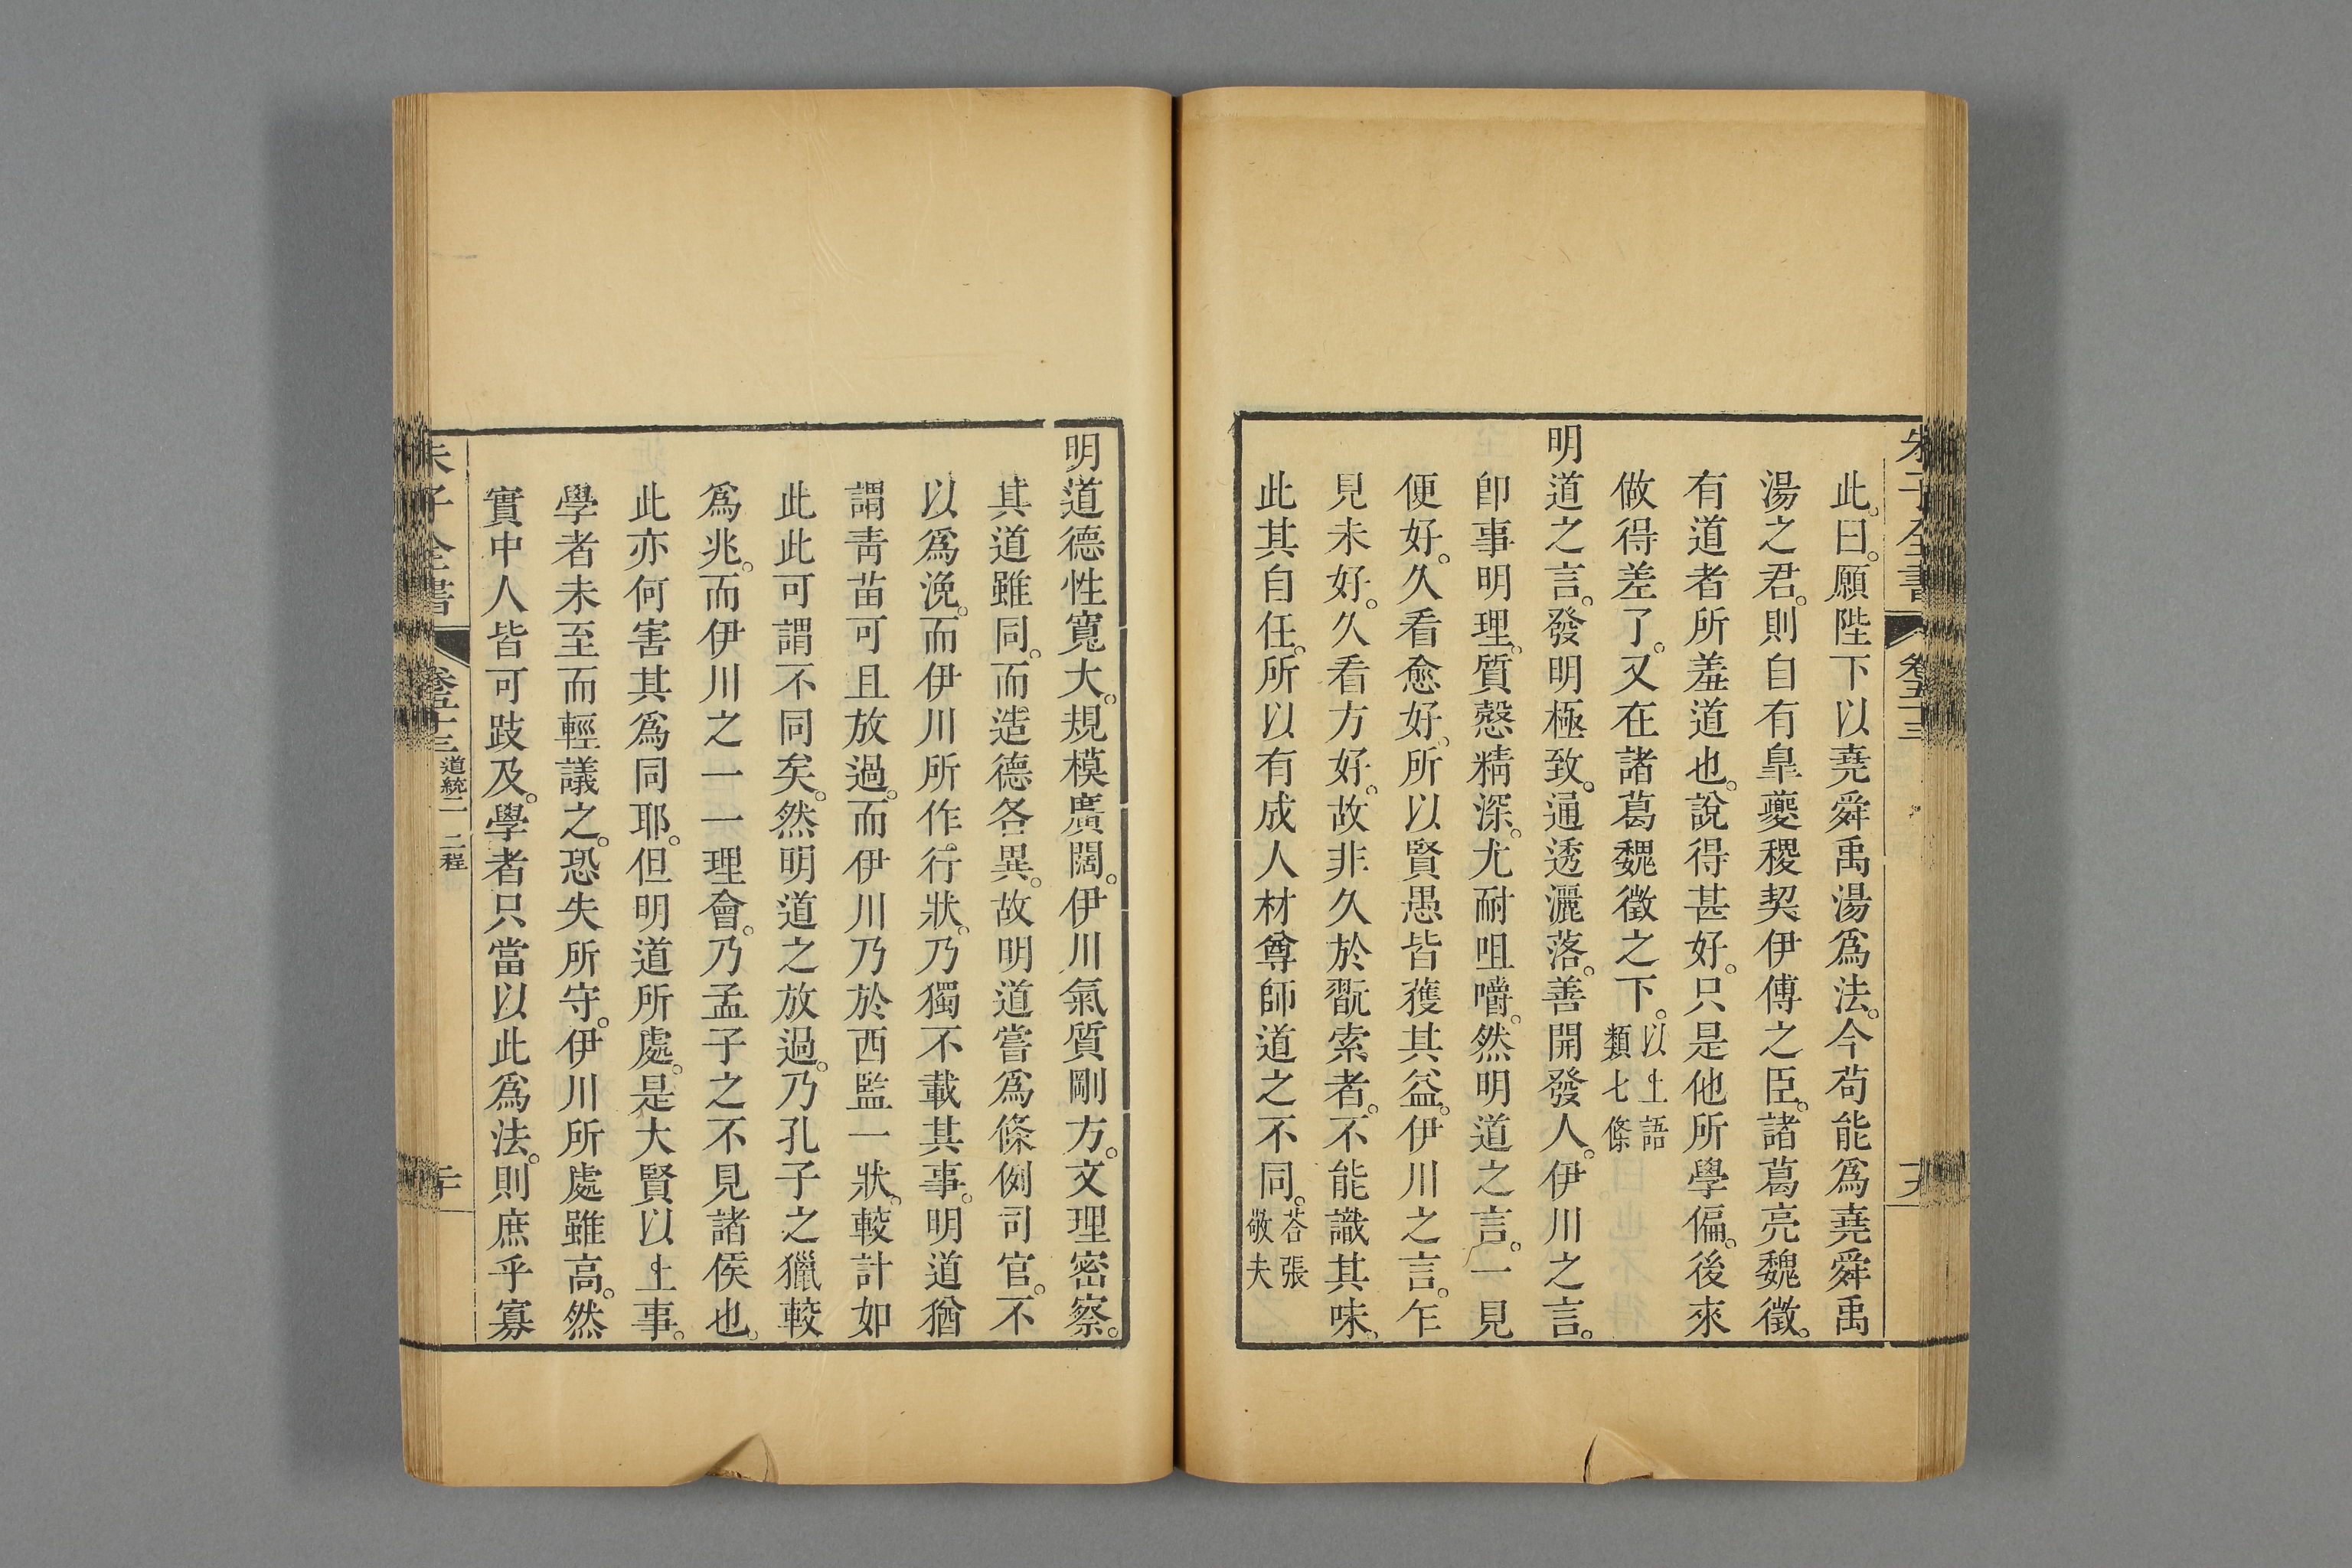 朱子全書 卷五十三 十九
此。曰。願陛下以堯舜禹湯爲法。今苟能爲堯舜禹
湯之君。則自有臯夔稷契伊傅之臣。諸葛亮魏徵。
有道者所羞道也。說得甚好。只是他所學偏。後來
做得差了。又在諸葛魏徵之下。以上語類七條
明道之言。發明極致。通透灑落。善開發人。伊川之言。
卽事明理。質慤精深。尤耐咀嚼。然明道之言。一見
便好。久看愈好。所以賢愚皆獲其益。伊川之言。乍
見未好。久看方好。故非久於翫索者。不能識其味。
此其自任。所以有成人材尊師道之不同。荅張敬夫
明道德性寬大。規模廣闊。伊川氣質剛方。文理密察。
其道雖同。而造德各異。故明道嘗爲條例司官。不
以爲浼。而伊川所作行狀。乃獨不載其事。明道猶
謂靑苗可且放過。而伊川乃於西監一狀。較計如
此。此可謂不同矣。然明道之放過。乃孔子之獵較
爲兆。而伊川之一一理會。乃孟子之不見諸侯也。
此亦何害其爲同耶。但明道所處。是大賢以上事。
學者未至而輕議之。恐失所守。伊川所處雖高。然
實中人皆可跂及。學者只當以此爲法。則庶乎寡
朱子全書 卷五十三 道統二 二程 二十